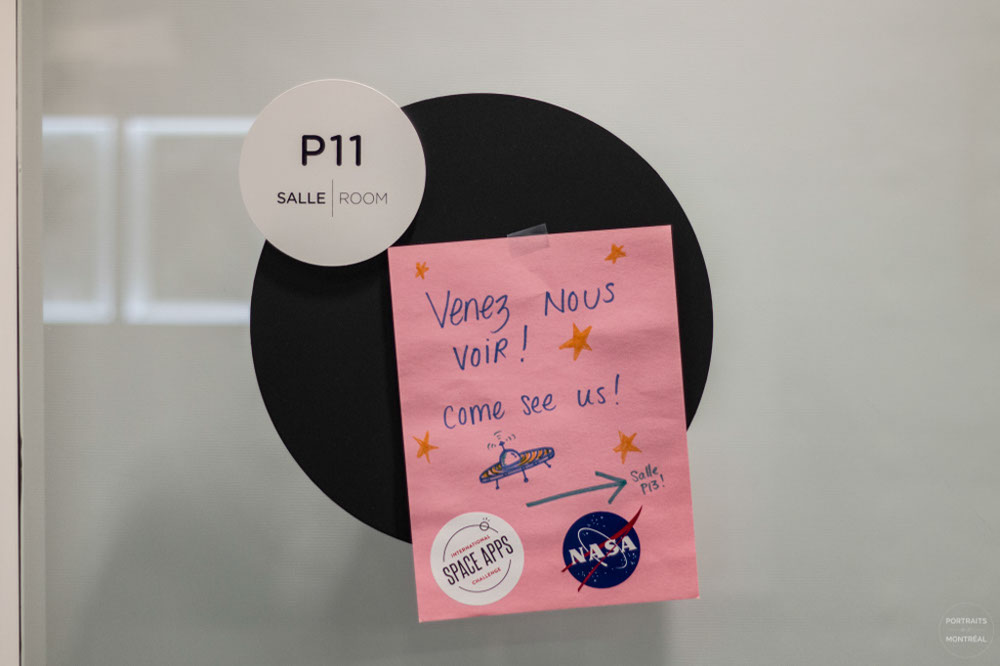 P11
SALLE | ROOM
Venez NOUS
VOIR!
come see us!
Salle
P13!
INTERNATIONAL
SPACE APPS
CHALLENGE
NASA
PORTRAITS
MONTRÉAL